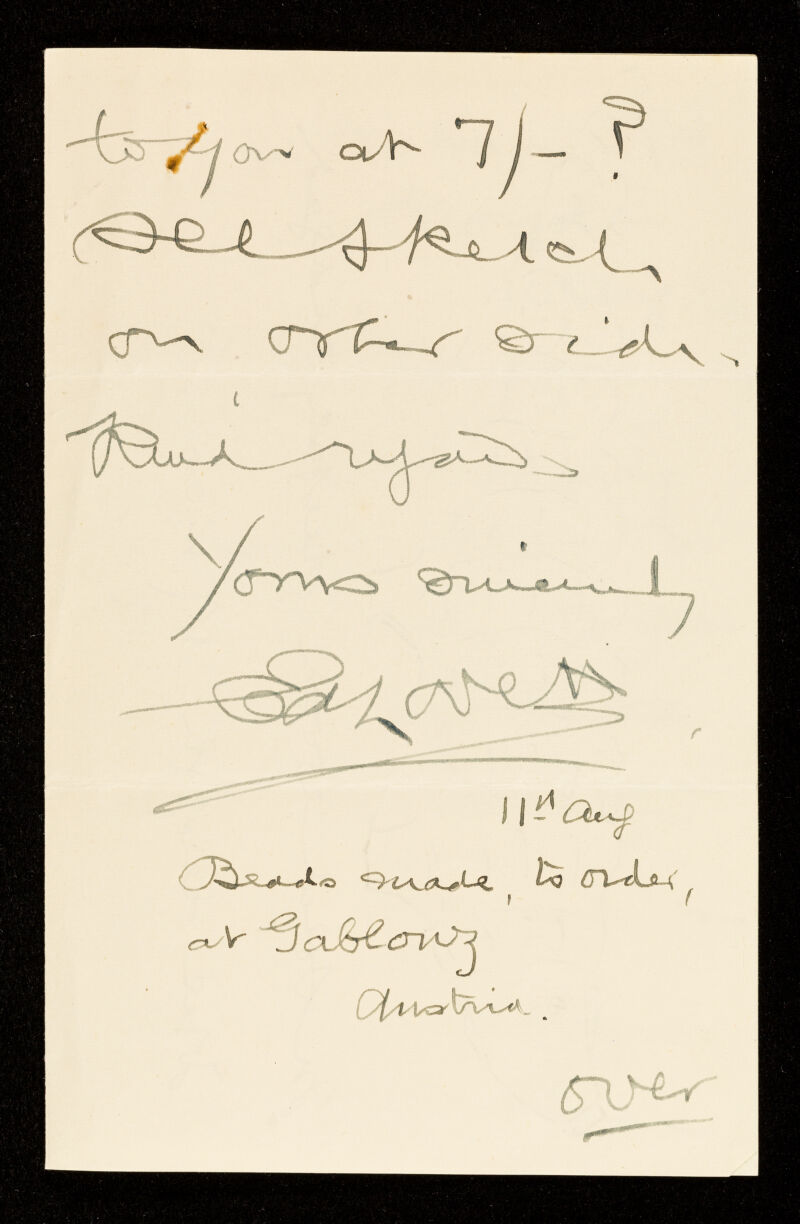 to you at 7/- ?
See sketch
on other side.
Kind regards
Yours sincerely
Ed Lovett
11th Aug
Beads made, to order,
at Gablonz
Austria.
over